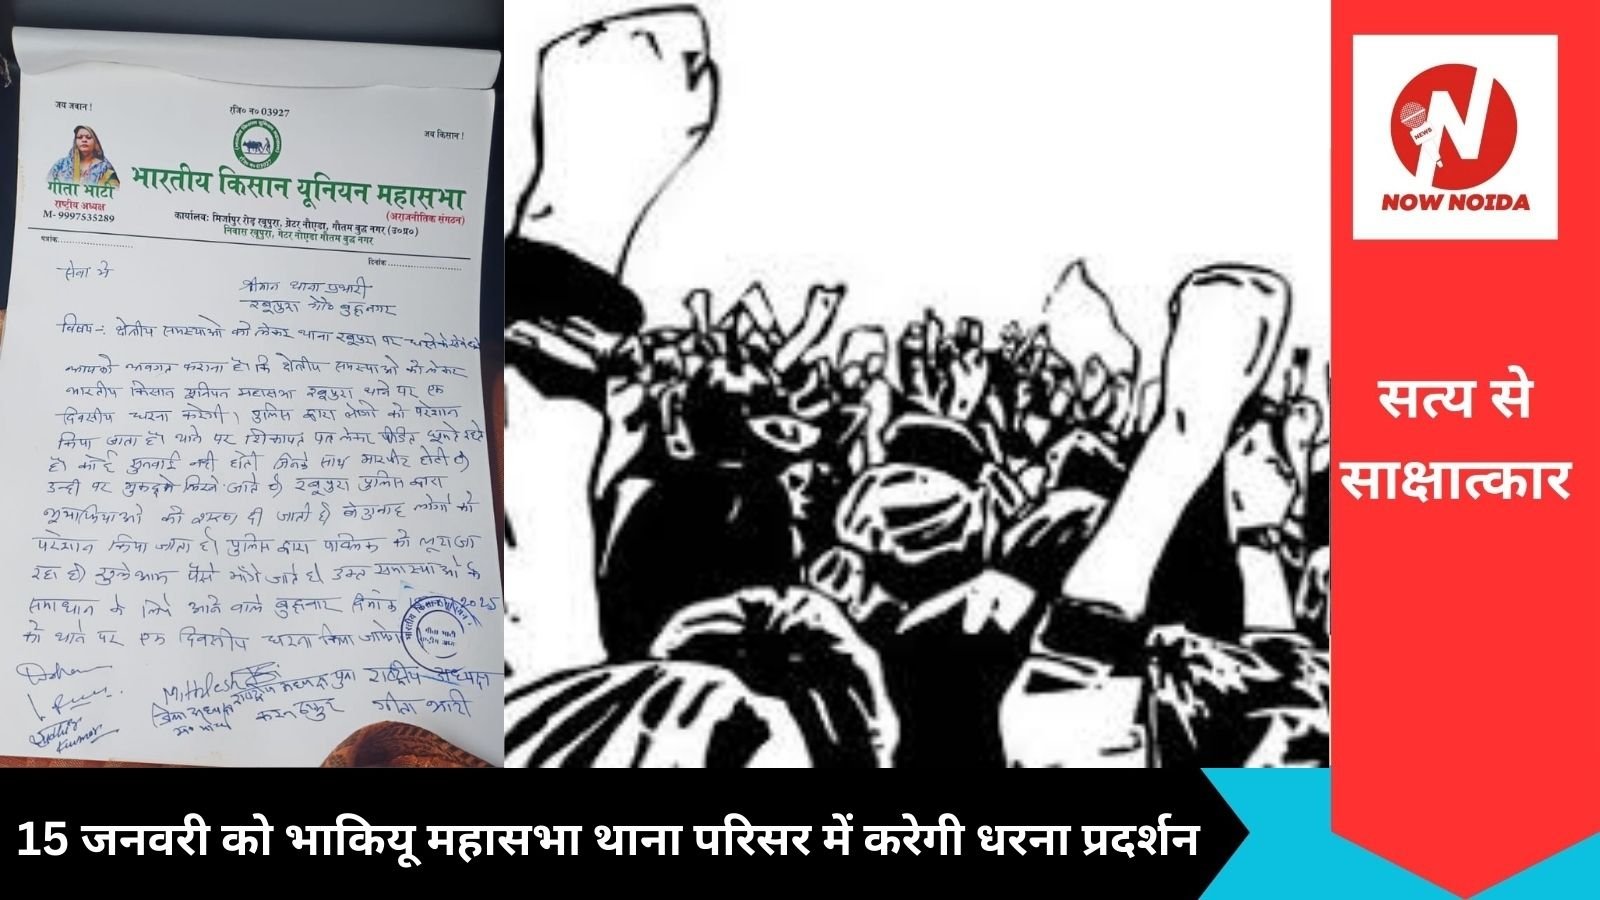 जय जवान !
रजि० न० 03927
जय किसान !
गीता भाटी
राष्ट्रीय अध्यक्ष
M- 9997535289
भारतीय किसान यूनियन महासभा
(अराजनीतिक संगठन)
कार्यालयः मिर्जापुर रोड़ रबूपुरा, ग्रेटर नौएडा, गौतम बुद्ध नगर (उ०प्र०)
निवास रबूपुरा, ग्रेटर नोएडा गौतम बुद्ध नगर
पत्रांक....................
दिनांक ....................
सेवा मे
श्रीमान थाना प्रभारी
रबूपुरा गौ०
विषय-: क्षेत्रीय समस्याओ को लेकर थाना रबूपुरा पर
आपको अवगत कराना है कि क्षेत्रीय समस्याओ को लेकर
भारतीय किसान यूनियन महासभा रबूपुरा थाने पर एक
दिवसीय धरना करेगी। पुलिस द्वारा लोगो को परेशान
किया जाता है। थाने पर शिकायत पत्र लेकर पीडित घूमते रहते
है। कोई सुनवाई नही होती जिनके साथ मारपीट होती है
उन्ही पर मुकदमे लिखे जाते है रबूपुरा पुलिस द्वारा
भूमाफियाओ को शरण दी जाती है। बेगुनाह लोगो को
परेशान किया जाता है। पुलिस द्वारा पब्लिक को लूटा जा
रहा है। खुलेआम पैसे माँगे जाते है। उक्त समस्याओ के
समाधान के लिये आने वाले बुद्धवार दिनांक 2025
को थाने पर एक दिवसीय धरना किया जायेगा
Mithlesh
राष्ट्रीय अध्यक्ष
गीता भाटी
Sudhir
Kumar
NEWS
NOW NOIDA
सत्य से
साक्षात्कार
15 जनवरी को भाकियू महासभा थाना परिसर में करेगी धरना प्रदर्शन